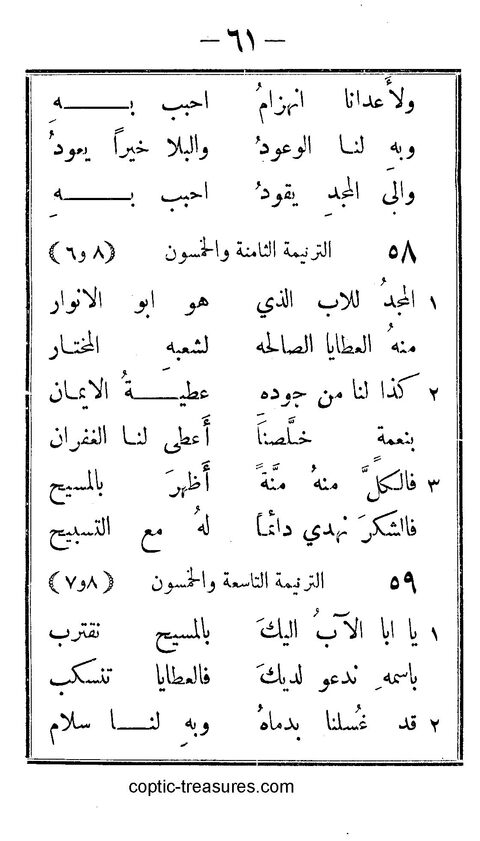 — ٦١ —
ولأَعدانا انهزامُ احبب بـــهِ
وبهِ لنا الوعودُ والبلا خيراً يعودُ
والى المجدِ يقودُ احبب بـــهِ
٥٨ الترنيمة الثامنة والخمسون (٨ و٦)
١ المجدُ للاب الذي هو ابو الانوار
منهُ العطايا الصالحه لشعبهِ المختار
٢ كذا لنا من جودهِ عطيـــةُ الايمان
بنعمة خلَّصنا أَعطى لنا الغفران
٣ فالكلَّ منهُ منَّةً أَظهرَ بالمسيح
فالشكرَ نهدي دائماً لهُ مع التسبيح
٥٩ الترنيمة التاسعة والخمسون (٨ و٧)
١ يا ابا الآبُ اليكَ بالمسيح نقترب
باسمهِ ندعو لديكَ فالعطايا تنسكب
٢ قد غُسلنا بدماهُ وبهِ لنـــا سلام
coptic-treasures.com